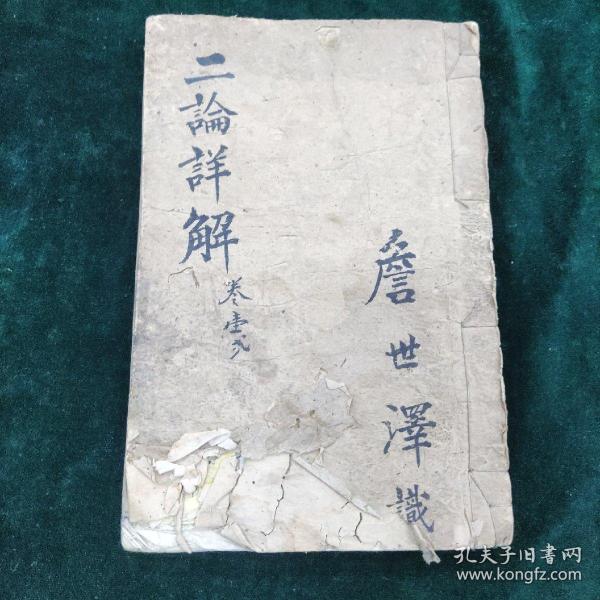 二論詳解
卷壹弍
詹世澤識
孔夫子旧書网
www.kongfz.com